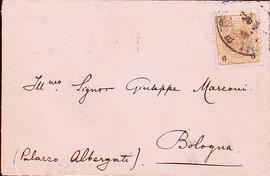 6
Ill.mo Signor Giuseppe Marconi.
Bologna
(Palazzo Albergati).